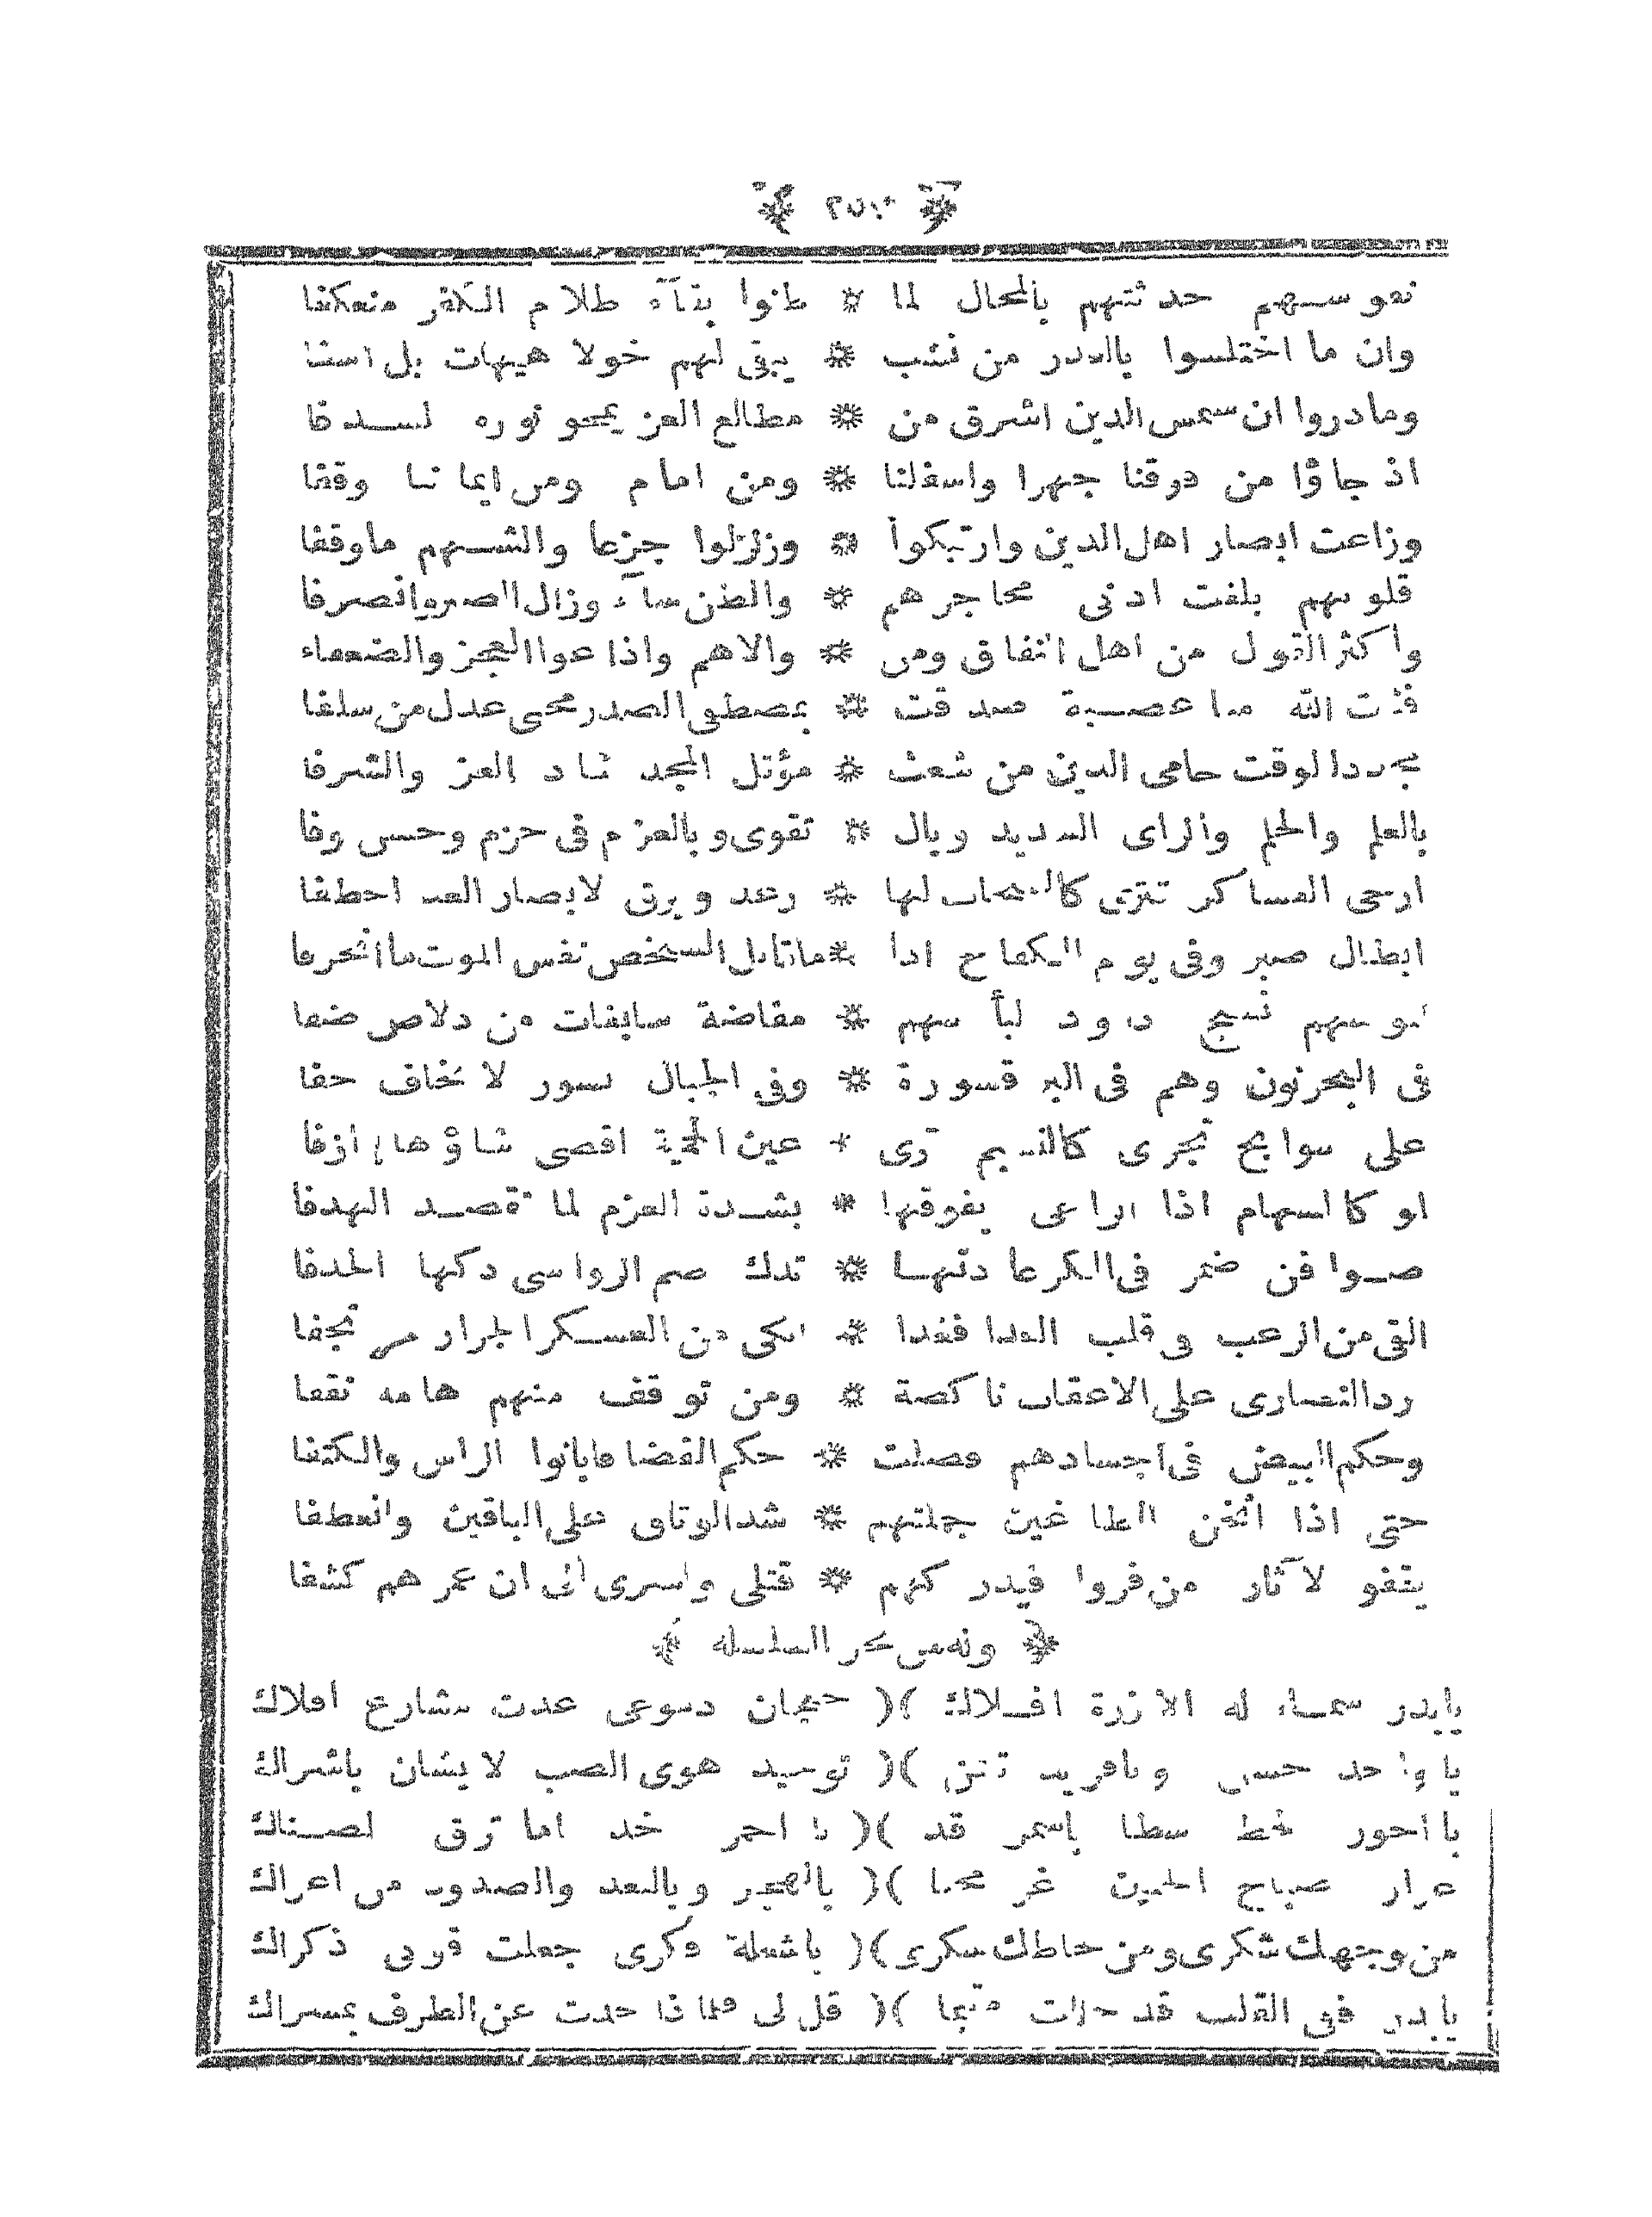 نفوسهم حدثتهم بالمحال لما * ظنوا بقآء ظلام الكفر منعكفا
وان ما اختلسوا بالغدر من نشب * يبقى لهم خولا هيهات بل اسفا
وما دروا ان شمس الدين اشرق من * مطالع العز يمحو نوره لسدفا
اذ جاؤا من فوقنا جهرا واسفلنا * ومن امام ومن ايماننا وقفا
وزاغت ابصار اهل الدين وارتبكوا * وزلزلوا جزعا والشهم ما وقفا
قلوبهم بلغت ادنى محاجرهم * والظن ساء وزال الصبر وانصرفا
واكثر القول من اهل النفاق ومن * والاهم واذاعوا العجز والضعفاء
فثبت الله منا عصبة صدقت * بمصطفى الصدر محيى عدل من سلفا
مجدد الوقت حامى الدين من شعث * مؤثل المجد شاد العز والشرفا
بالعلم والحلم والراى السديد وبال * تقوى وبالعزم فى حزم وحسن وفا
ازجى العساكر تترى كالسحاب لها * رعد وبرق لابصار العد اخطفا
ابطال صبر وفى يوم الكفاح اذا * ما قابل الشخص نفس الموت ما انحرفا
لبوسهم نسج داود لبأسهم * مفاضة سابغات من دلاص ضفا
فى البحر نون وهم فى البر قسورة * وفى الجبال نسور لا تخاف حفا
على سوابح تجرى كالنسيم ترى * عين الحمية اقصى شاؤها ازفا
او كالسهام اذا الراعى يفوقها * بشدة العزم لما تقصد الهدفا
صوافن ضمر فى الكر عادتها * تدك صم الرواسى دكها الخدفا
القى من الرعب فى قلب العدا فغدا * انكى من العسكر الجرار مرتجفا
رد النصارى على الاعقاب ناكصة * ومن توقف منهم هامه نقفا
وحكم البيض فى اجسادهم فصلت * حكم القضا فابانوا الراس والكتفا
حتى اذا اثخن الطاغين جملتهم * شد الوثاق على الباقين وانعطفا
يقفو لآثار من فروا فيدركهم * قتلى واسرى الى ان عمرهم كشفا
وله من بحر السلسله
يا بدر سماء له الازرة افلاك )( خيجان دموعى غدت مشارع افلاك
يا واحد حسن ويا فريد تثن )( توحيد هوى الصب لا يشان باشراك
يا احور لحظ سطا باسمر قد )( يا احمر خد اما ترق لصناك
صباح الجبين غر محبا )( بالهجر وبالبعد والصدود من اغراك
من وجهك شكرى ومن لحاظك سكرى )( يا شعلة فكرى جعلت قربى ذكراك
يا بدر ففى القلب قد حللت مقيما )( قل لى فلماذا حدت عن الطرف بمسراك